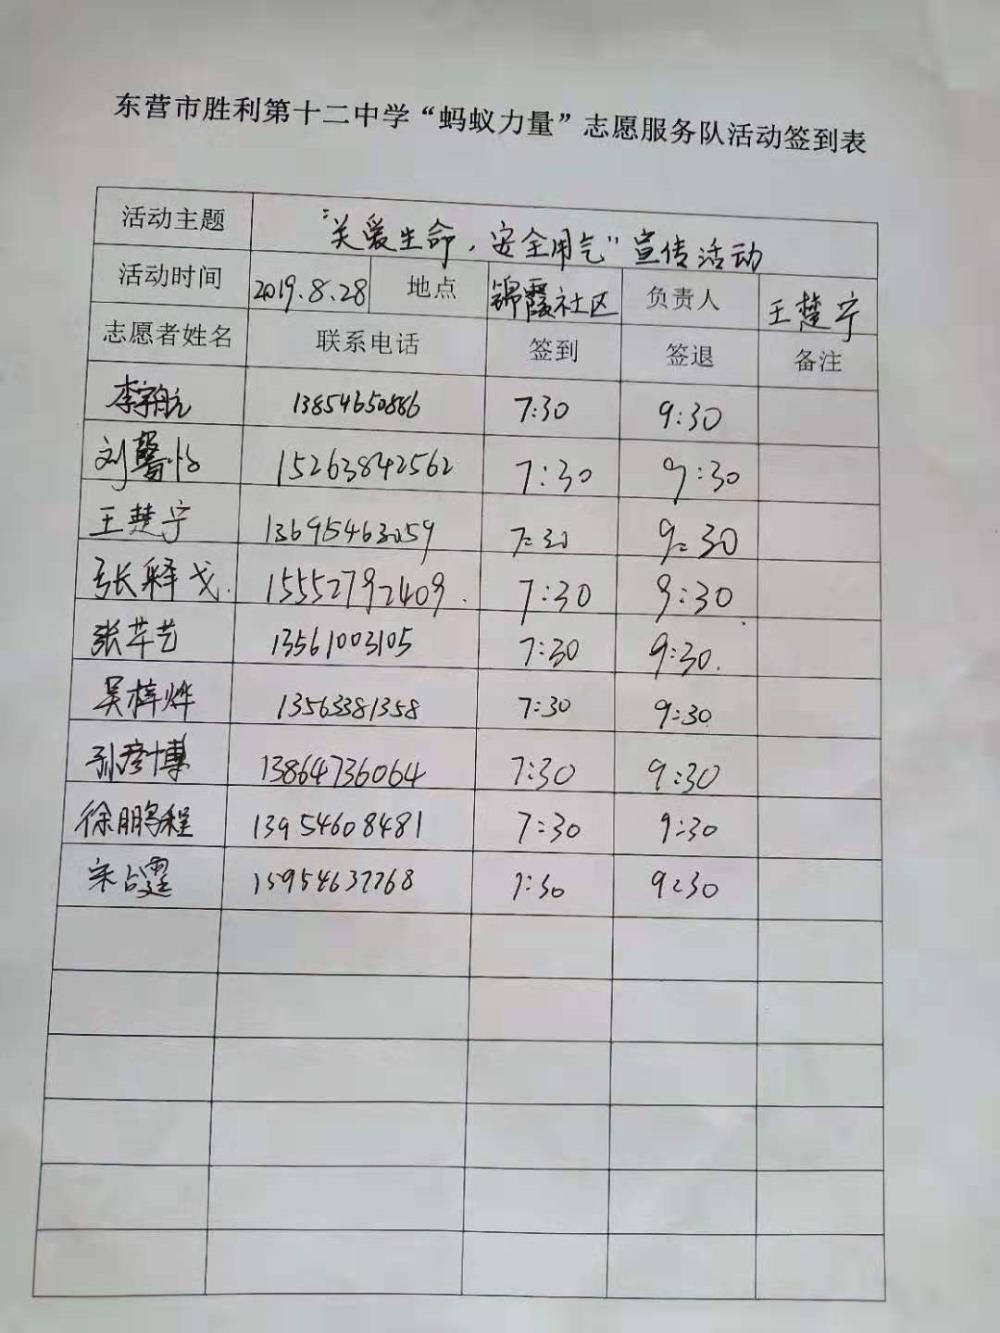 东营市胜利第十二中学“蚂蚁力量”志愿服务队活动签到表
活动主题 “关爱生命，安全用气”宣传活动
活动时间 2019.8.28 地点 锦霞社区 负责人 王楚宁
志愿者姓名 联系电话 签到 签退 备注
李宇航 13854650886 7:30 9:30
刘馨怡 15263842562 7:30 9:30
王楚宁 13695463059 7:30 9:30
张释戈 15552792409 7:30 9:30
张芊艺 13561003105 7:30 9:30
吴梓烨 13563381358 7:30 9:30
孙彦博 13864736064 7:30 9:30
徐鹏程 13954608481 7:30 9:30
宋台霆 15954637768 7:30 9:30